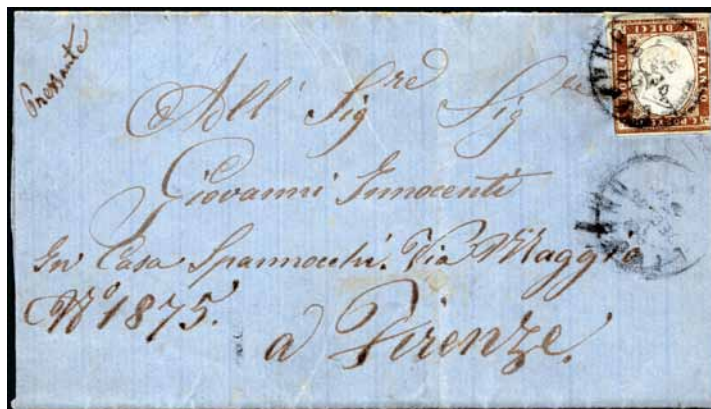 Pressante
All' Sig.re Sig.re
Giovanni Innocenti
In Casa Spannocchi. Via Maggio
Nº 1875.
a Firenze.
C. DIECI
FRANCO
C. POSTE
BOLLO